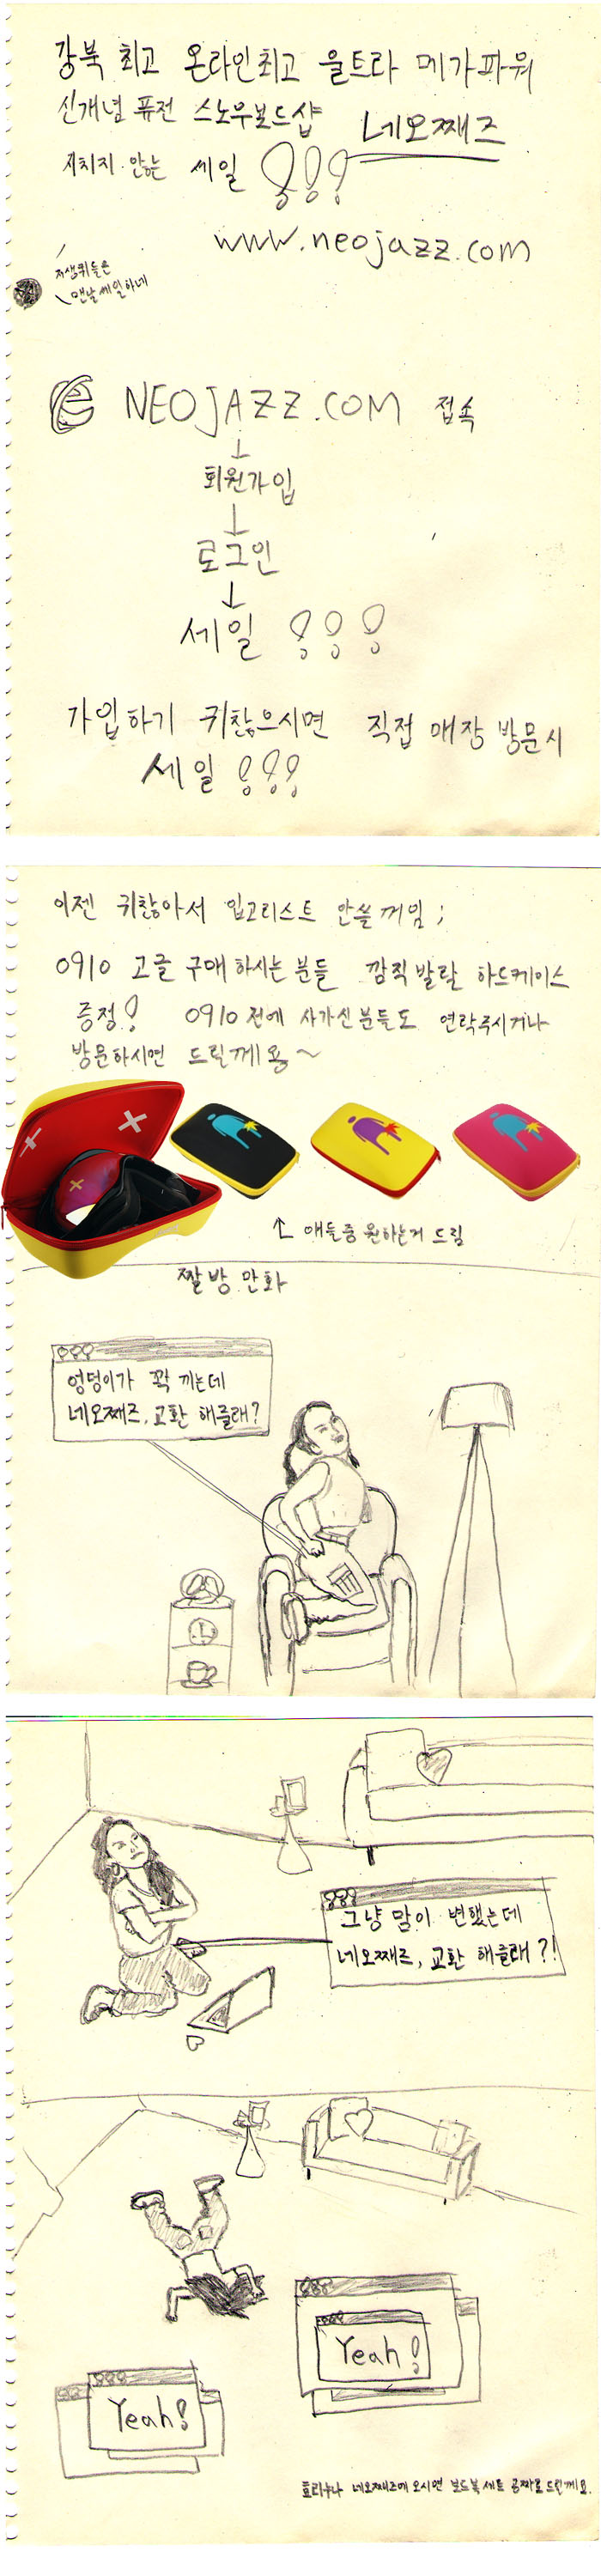 강북 최고 온라인최고 울트라 메가파워
신개념 퓨전 스노우보드샵 네오째즈
지치지 않는 세일 !!!
www.neojazz.com
저생퀴들은
맨날 세일하네
NEOJAZZ.COM 접속
↓
회원가입
↓
로그인
↓
세일 !!!
가입하기 귀찮으시면 직접 매장 방문시
세일 !!!
이젠 귀찮아서 입고리스트 안쓸꺼임;
0910 고글 구매하시는 분들 깜직발랄 하드케이스
증정! 0910 전에 사가신분들도 연락주시거나
방문하시면 드릴께용~
↑ 얘들중 원하는거 드림
짤방 만화
엉덩이가 꽉 끼는데
네오째즈, 교환 해줄래?
그냥 맘이 변했는데
네오째즈, 교환 해줄래?!
Yeah!
Yeah!
효리누나 네오째즈에 오시면 보드복 세트 공짜로 드릴께요.